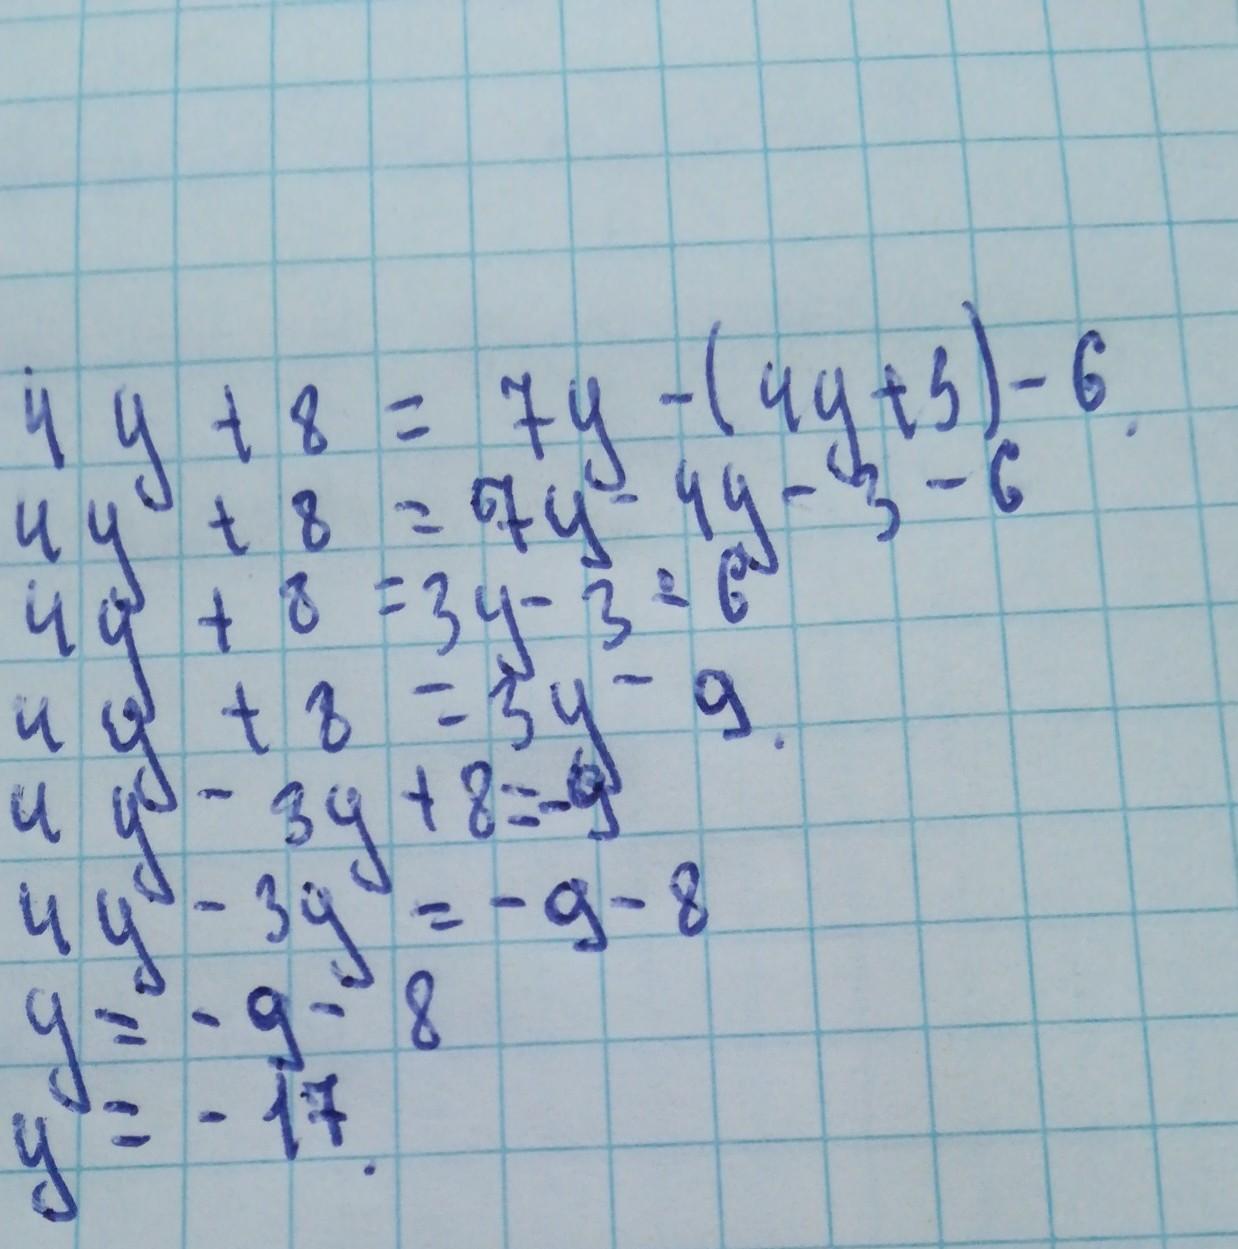 4y + 8 = 7y - (4y + 3) - 6.
4y + 8 = 7y - 4y - 3 - 6
4y + 8 = 3y - 3 - 6
4y + 8 = 3y - 9.
4y - 3y + 8 = -9
4y - 3y = -9 - 8
y = -9 - 8
y = -17.